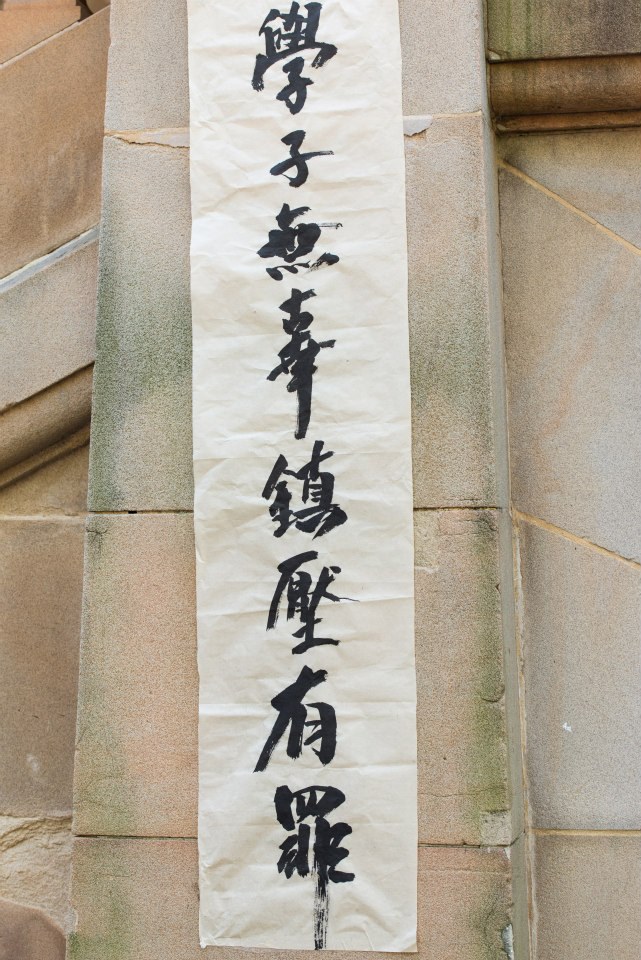 學子無辜鎮壓有罪